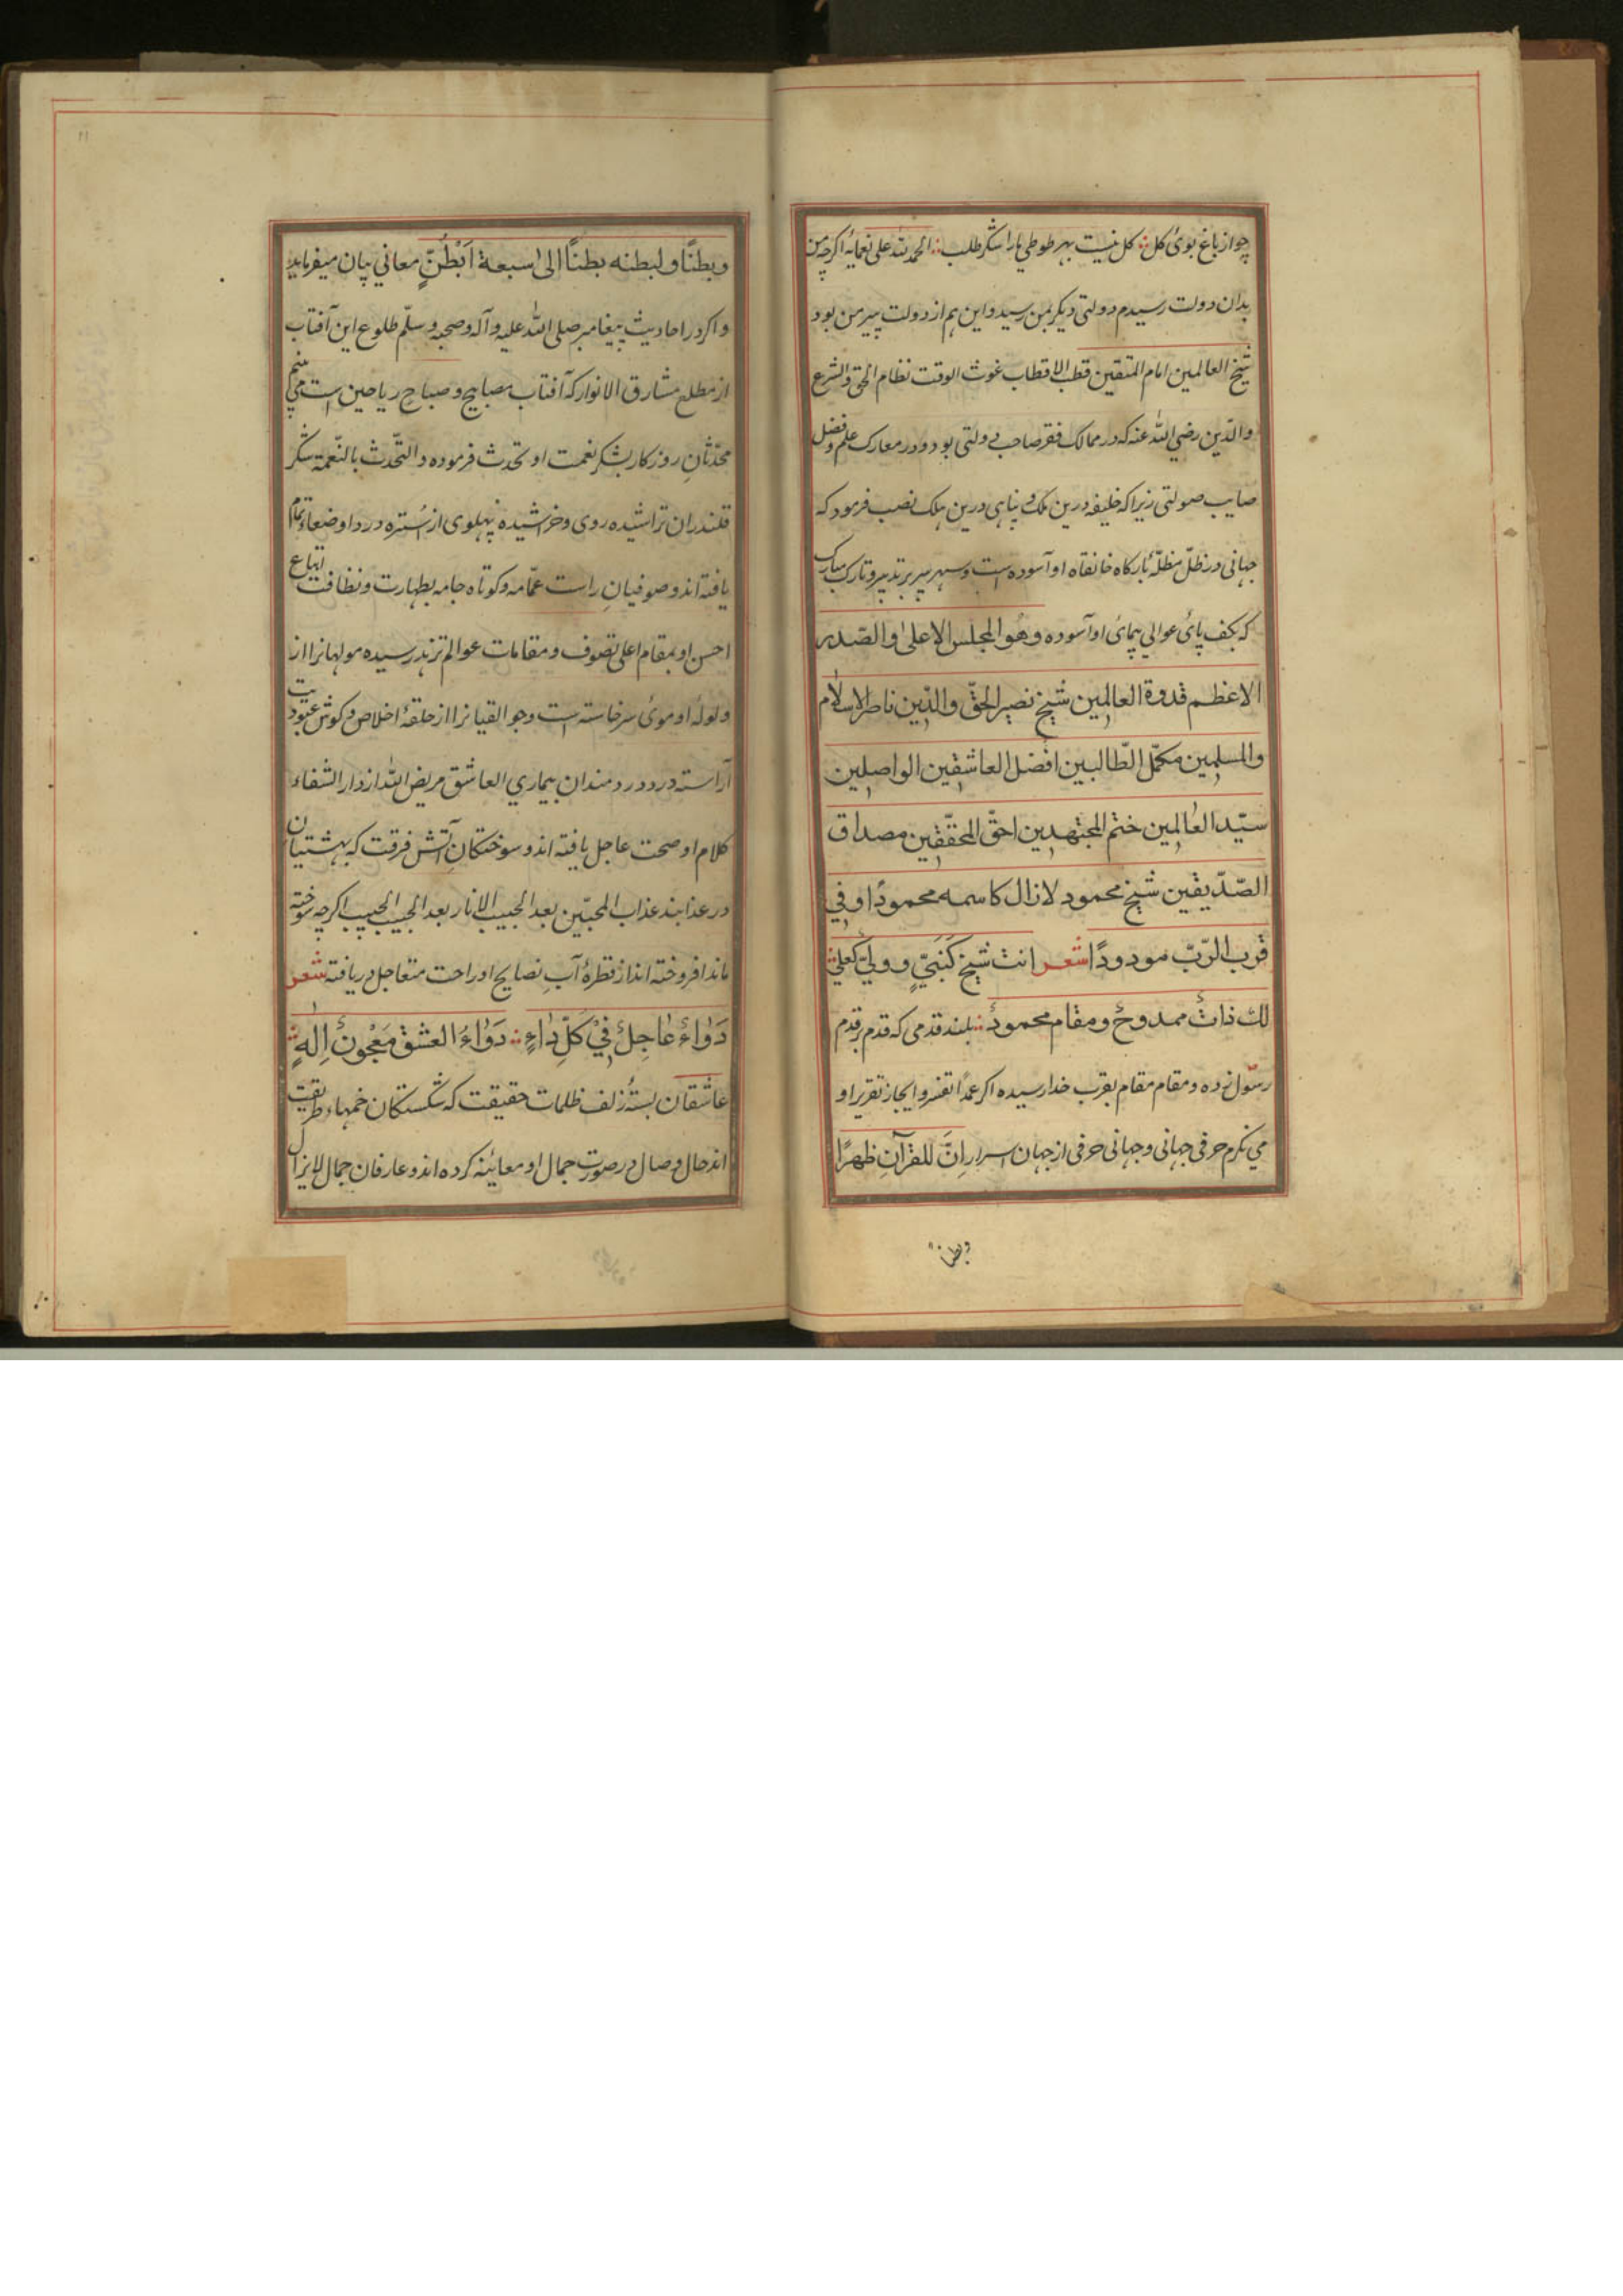 چو از باغ بوی کل ∴ کل نیست بهر طوطی ما را شکر طلب ∴ الحمد لله علی نعمایه اکرچه من
بدان دولت رسیدم دولتی دیکر بمن رسید و این هم از دولت پیر من بود
شیخ العالمین امام المتقین قطب الاقطاب غوث الوقت نظام الحق والشرع
والدّین رضی الله عنه که در ممالک فقر صاحب دولتی بود و در معارک علم و فضل
صایب صولتی زیرا که خلیفه درین ملک و پناهی درین ملک نصب فرمود که
جهانی در ظلّ مظلّهٔ بارکاه خانقاه او آسوده است و سپهر پیر بر تدبیر و تارک مبارک
که بکف پائ عوالی پیمائ او آسوده وهُو المجلس الاعلیٰ والصّدر
الاعظم قدوة العالمین شیخ نصیر الحقّ والدّین ناصر الاسلام
والمسلمین مکمّل الطّالبین افضل العاشقین الواصلین
سیّد العالمین ختم المجتهدین احقّ المحقّقین مصداق
الصّدّیقین شیخ محمود لا زال کاسمه محمودًا و فی
قرب الرّبّ مودودًا شعر انت شیخ کنبیٍّ و ولیّ کعلیّ ∴
لك ذاتٌ ممدوحٌ و مقام محمودٌ ∴ بلند قدمی که قدم بر قدم
رسول زده و مقام مقام بقرب خدا رسیده اکر عمداً تفسر و ایجاز تقریر او
می نکرم حرفی جهانی و جهانی حرفی از جهان اسرار اِنَّ للقرآنِ ظهرًا
وبطناً
۱۱
وبطنًا ولبطنه بطنًا الی سبعة اَبْطُنٍ معانی بیان میفرماید
و اکر در احادیث پیغامبر صلی الله علیه و آله و صحبه و سلّم طلوع این آفتاب
از مطلع مشارق الانوار که آفتاب مصابیح و صباح ریاحین است می بینم
محدّثانِ روزکار بشکر نعمت او تحدث فرموده و التّحدث بالنّعمة شکر
قلندران تراشیده روی و خراشیده پهلوی از سُتره درد او ضعاء تمام
یافته اند و صوفیانِ راست عمّامه و کوتاه جامه بطهارت و نظافت اتباع
احسن او بمقام اعلی تصوف و مقامات عوالم تزهد رسیده مولهانرا از
ولولهٔ او موئ سر خاسته است و جوالقیانرا از حلقهٔ اخلاص در کوش عبودیت
آراسته درد دردمندان بیماری العاشق مریض الله از دار الشفاء
کلام او صحت عاجل یافته اند و سوختکانِ آتش فرقت که بهشتیان
در عذابند عذاب المحبّین بعد الحبیب الا نار بعد الحبیب الحبیب اکرچه سوخته
ماند افروخته اند از قطرهٔ آبِ نصایح او راحت متعاجل دریافته شعر
دَوٰاءٌ عٰاجِلٌ فِیْ کُلِّ دٰاءٍ ∴ دَوٰاءُ العشق مَعْجونٌ اِلٰهِ ∴
عاشقان بستهٔ زلف ظلمات حقیقت که شکستکان خمهاء طریقت
اند حال وصال در صورت جمال او معاینه کرده اند و عارفان جمال لایزال